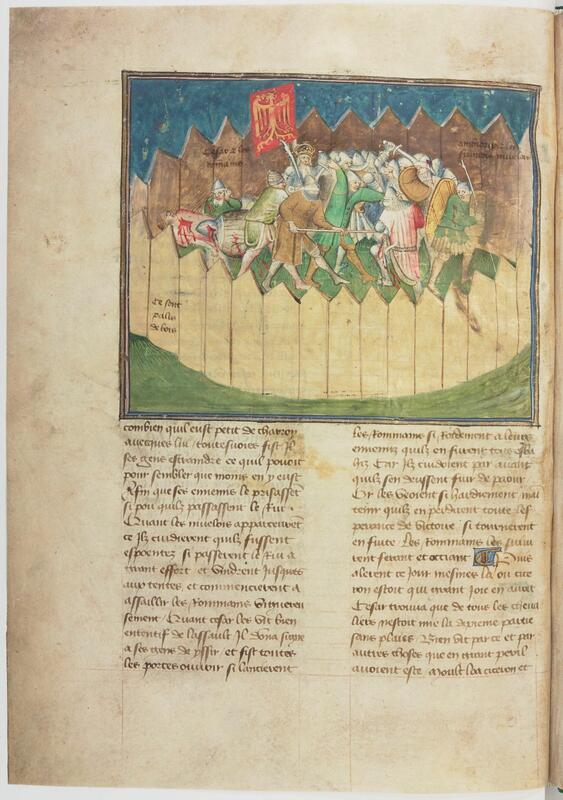 Cesar et les
rommains
Ce sont
palis
de bois
combien quil eust petit de charroy
auecques lui toutesuoies fist il
ses gens estraindre ce quil pouoit
pour sembler que moins en y eust
Afin que ses ennemis le prisassent
si pou quilz passassent le Ru
Quant les apparceurent
ce Ilz cuidierent quilz fussent
espoentez si passerent le Ru a
grant effort et vindrent Jusques
aux tentes et commencierent a
assaillir les Rommains
Quant cesar les vit bien
ententif de lassault Il dona signe
a ses gens de yssir et fist toutes
les portes ouurir si lancierent
les Rommains si Roidement a leurs
ennemis quilz en furent tous
Car Ilz cuidoient par auant
quilz sen deussent fuir de paour
Or les veoient si hardiement main
tenir quilz en perdirent toute les
perance de victoire si tournerent
en fuite Les Rommains les suiui
rent ferant et occiant Puis
alerent ce Jour mesmes la ou cice
ron estoit qui grant Joie en auoit
Cesar trouua que de tous les cheua
liers nestoit mie la dixieme partie
sans plaies Bien vit par ce et par
autres choses que en grant peril
auoient este Moult loa ciceron et